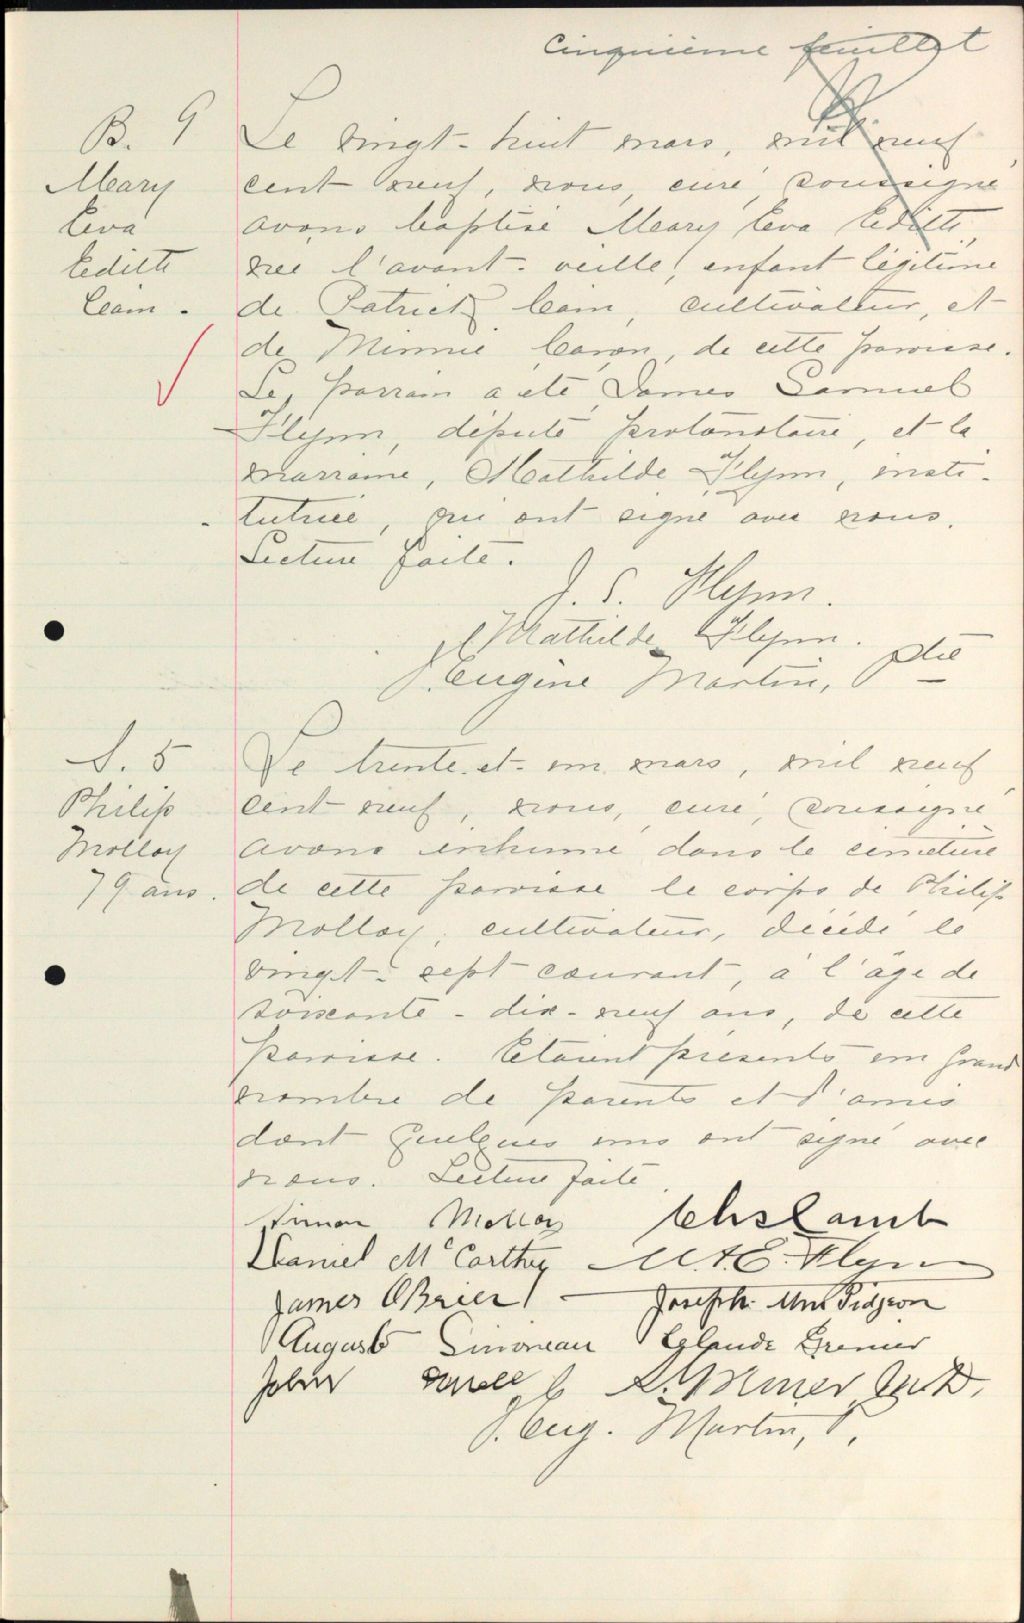 Cinquième feuillet
B. 9
Mary
Eva
Editte
Cain.
Le vingt-huit mars, mil neuf
cent neuf, nous, curé, soussigné
avons baptisé Mary Eva Editte,
née l'avant-veille, enfant légitime
de Patrick Cain, cultivateur, et
de Minnie Caron, de cette paroisse.
Le parrain a été James Samuel
Flynn, député protonotaire, et la
marraine, Mathilde Flynn, insti-
tutrice, qui ont signé avec nous.
Lecture faite.
J. S. Flynn.
Mathilde Flynn.
J. Eugène Martin, Ptre
S. 5
Philip
Molloy
79 ans.
Le trente-et-un mars, mil neuf
cent neuf, nous, curé, soussigné
avons inhumé dans le cimetière
de cette paroisse le corps de Philip
Molloy, cultivateur, décédé le
vingt-sept courant, à l'âge de
soixante-dix-neuf ans, de cette
paroisse. Etaient présents un grand
nombre de parents et d'amis
dont quelques uns ont signé avec
nous. Lecture faite.
Simon Molloy Chs Lamb
Daniel McCarthy M. A. E. Flynn
James OBrien Joseph Wm Pidgeon
Auguste Simoneau Glaude Grenier
John
J. Eug. Martin, P.